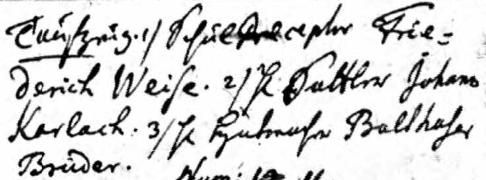 Taufzeug. 1/ Schul Præceptor Frie=
derich Weise. 2/ H. Sattler Johann
Karlach. 3/ H. Hutmacher Balthaser
Brüder.